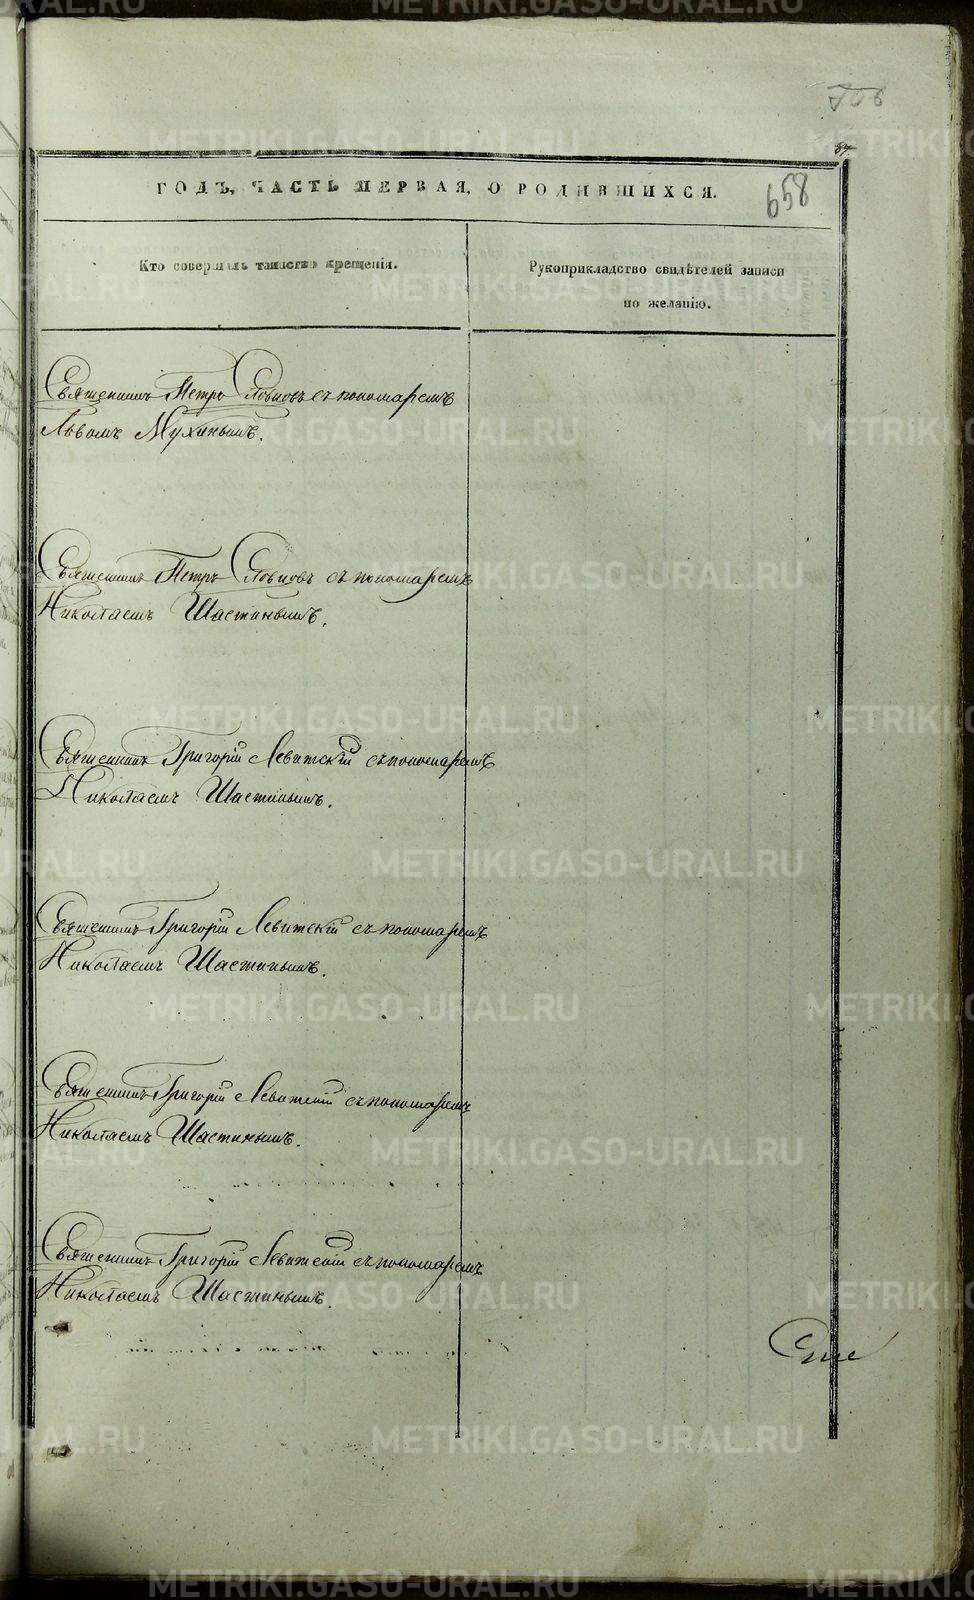 706
67
658
ГОДЪ, ЧАСТЬ ПЕРВАЯ, О РОДИВШИХСЯ.
Кто совершалъ таинство крещенія.
Рукоприкладство свидѣтелей записи
по желанію.
Священникъ Петръ Словцовъ съ пономаремъ
Львомъ Мухинымъ.
Священникъ Петръ Словцовъ съ пономаремъ
Николаемъ Шастинымъ.
Священникъ Григорій Левитскій съ пономаремъ
Николаемъ Шастинымъ.
Священникъ Григорій Левитскій съ пономаремъ
Николаемъ Шастинымъ.
Священникъ Григорій Левитскій съ пономаремъ
Николаемъ Шастинымъ.
Священникъ Григорій Левитскій съ пономаремъ
Николаемъ Шастинымъ.
METRIKI.GASO-URAL.RU